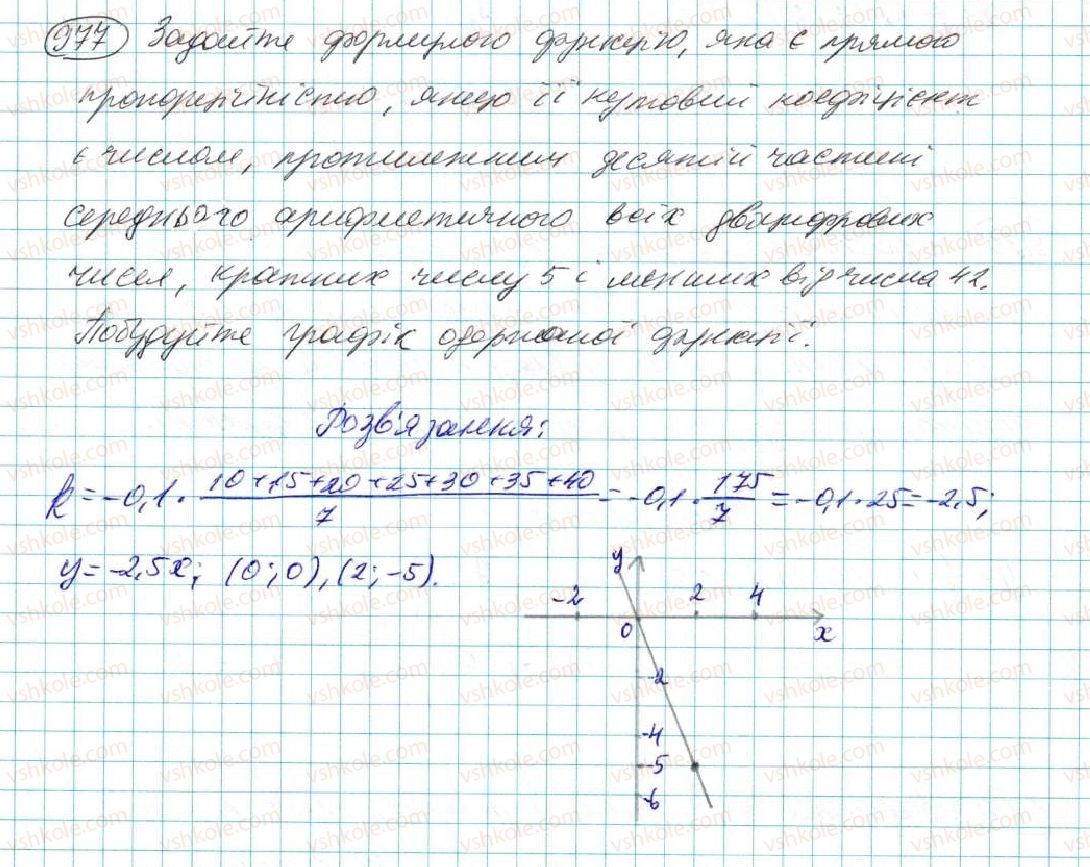 977 Задайте формулою функцію, яка є прямою
пропорційністю, якщо її кутовий коефіцієнт
є числом, протилежним десятій частині
середнього арифметичного всіх двоцифрових
чисел, кратних числу 5 і менших від числа 42.
Побудуйте графік одержаної функції.
Розв'язання:
k = -0,1 · (10+15+20+25+30+35+40)/7 = -0,1 · 175/7 = -0,1 · 25 = -2,5;
y = -2,5x; (0; 0), (2; -5).
y
-2 2 4
0 x
-2
-4
-5
-6
vshkole.com